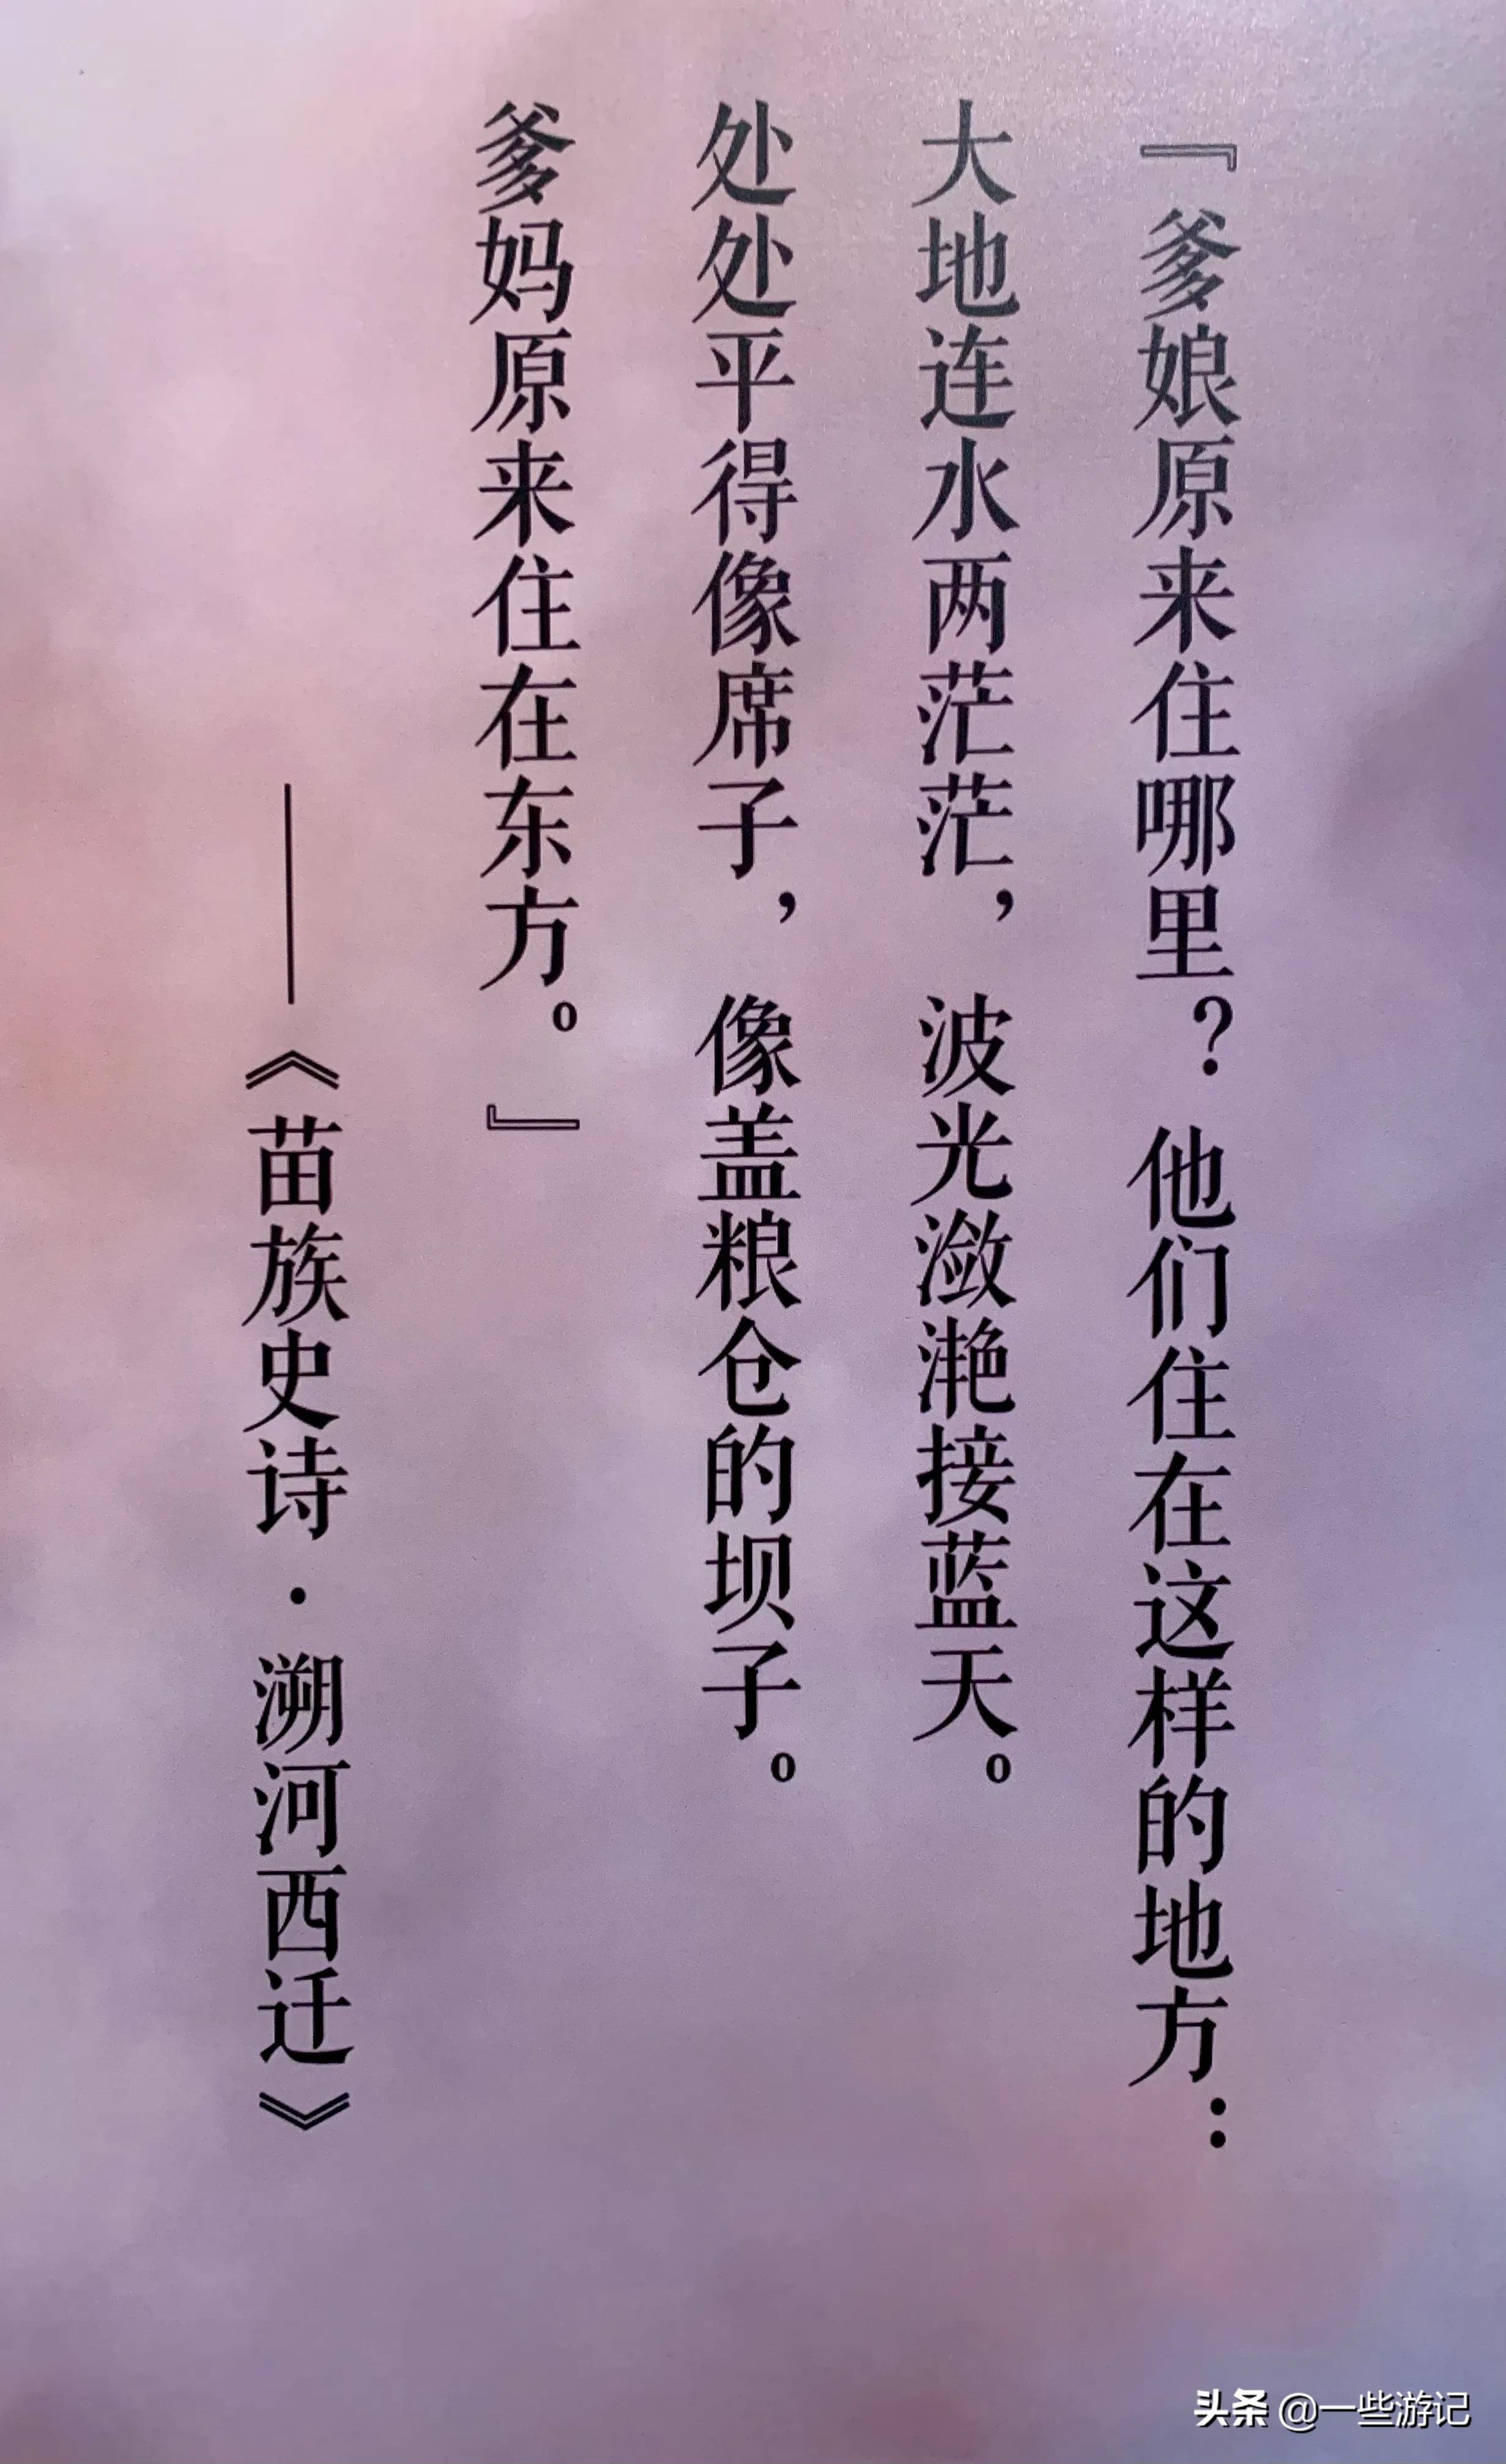 『爹娘原来住哪里？他们住在这样的地方：
大地连水两茫茫，波光潋滟接蓝天。
处处平得像席子，像盖粮仓的坝子。
爹妈原来住在东方。』
——《苗族史诗·溯河西迁》
头条 @一些游记